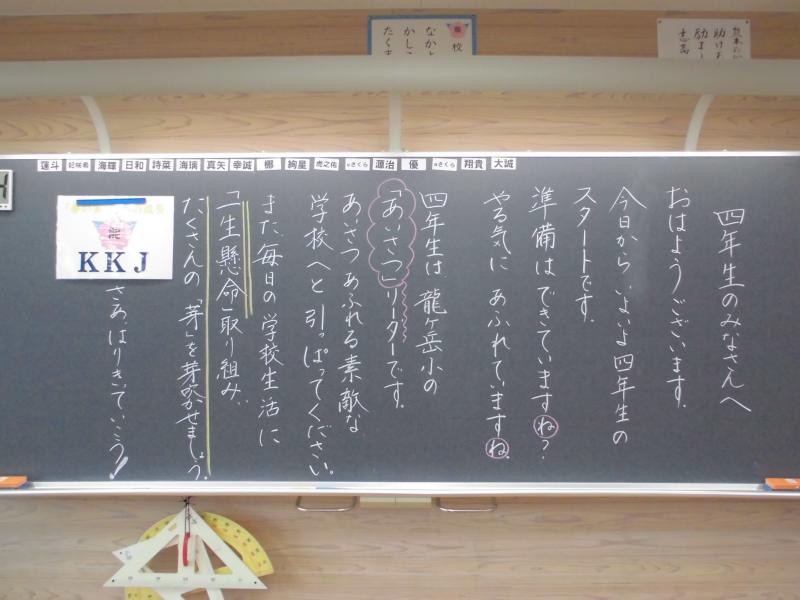 四年生のみなさんへ
おはようございます。
今日から いよいよ 四年生の
スタートです。
準備はできていますね？
やる気に あふれていますね。
四年生は 龍ヶ岳小の
「あいさつ」リーターです。
あいさつ あふれる 素敵な
学校へと 引っぱってください。
また、毎日の 学校生活に
「一生懸命」取り組み、
たくさんの「芽」を 芽吹かせましょう。
さあ、はりきっていこう！
KKJ
蓮斗
妃咲希
海輝
日和
詩菜
海璃
真矢
幸誠
梛
絢星
虎之佑
さくら
源治
優
さくら
翔貴
大誠
校
なかよ
かしこ
たくま
助け
励まし
志高